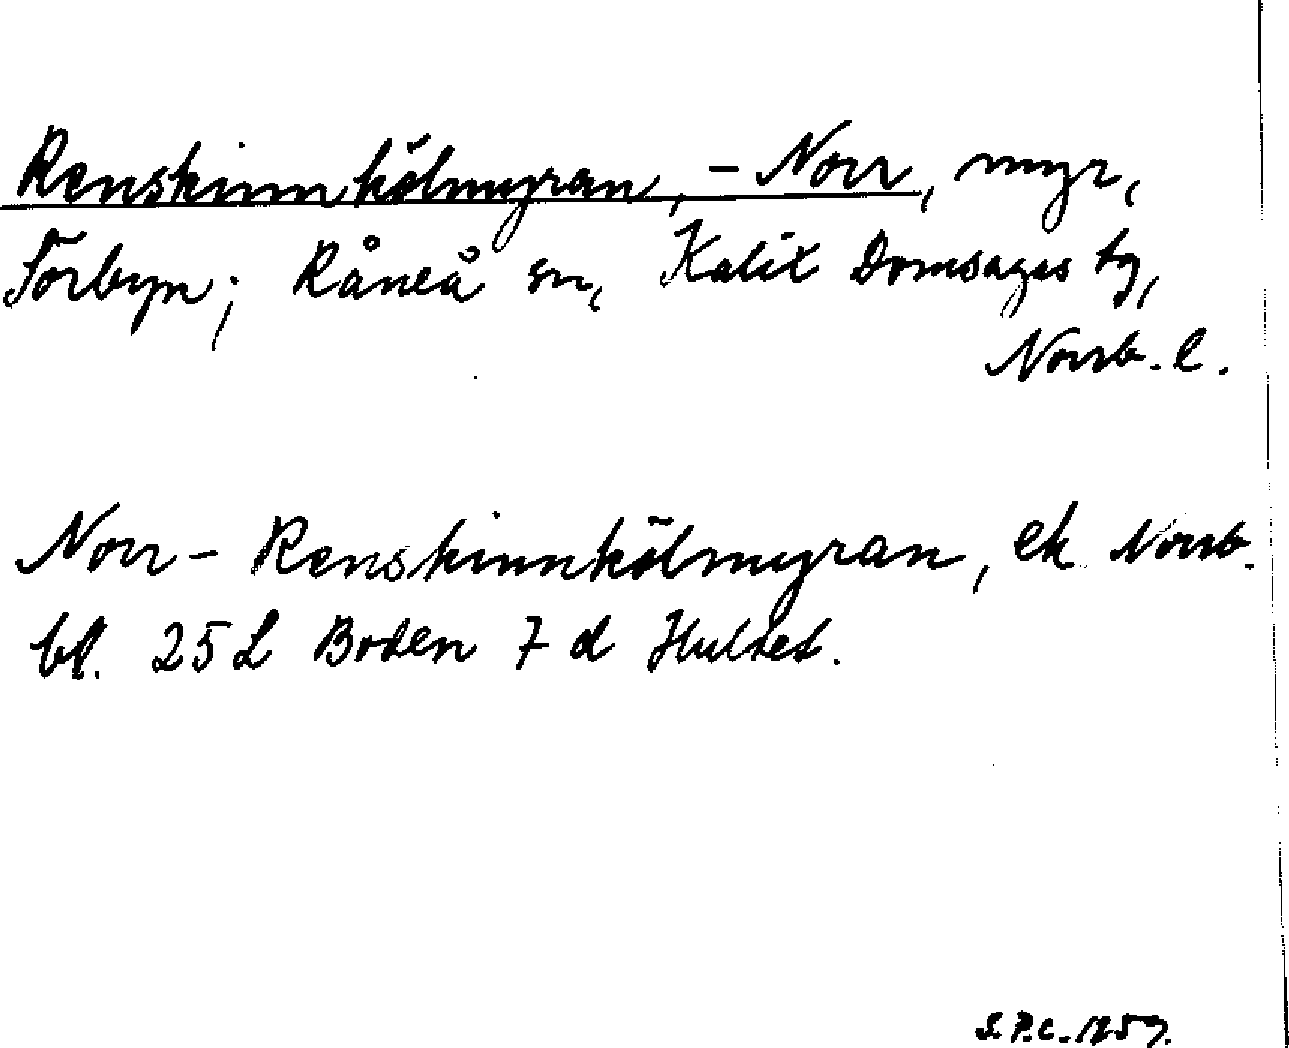 Renskinnkölmyran, - Norr, myr,
Törbyn; Råneå sn, Kalix Domsagas tg,
Norrb. l.
Norr - Renskinnkölmyran, ek Norrb.
bl. 25 L Boden 7 d Hultet.
S.P.C. 1959.